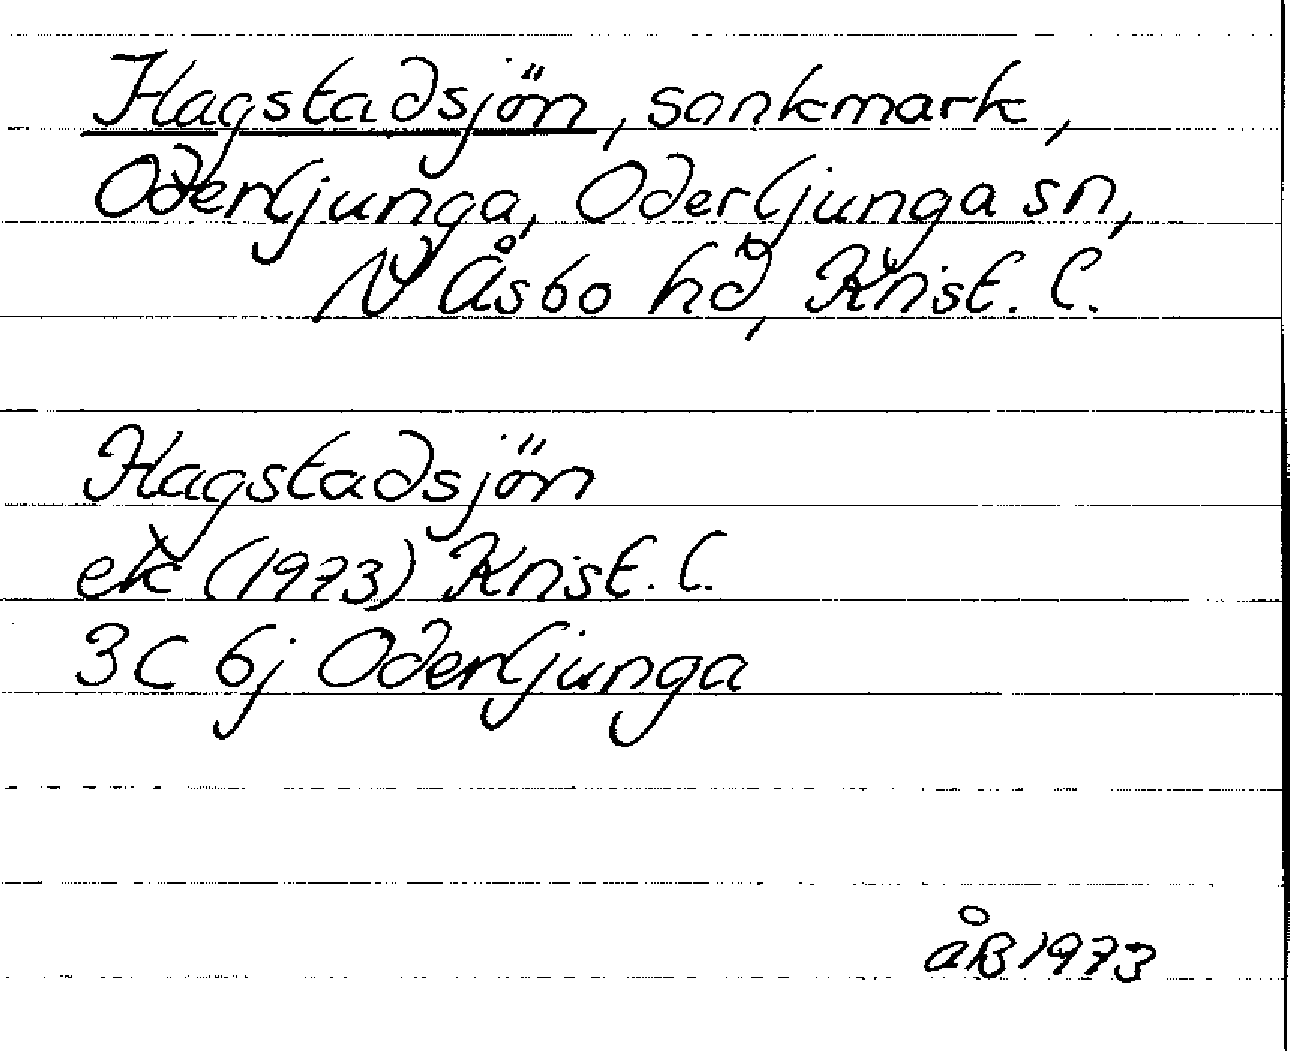 Hagstadsjön, sankmark,
Oderljunga, Oderljunga sn,
N Åsbo hd, Krist. l.
Hagstadsjön
ek (1973) Krist. l.
3C 6j Oderljunga
åB 1973